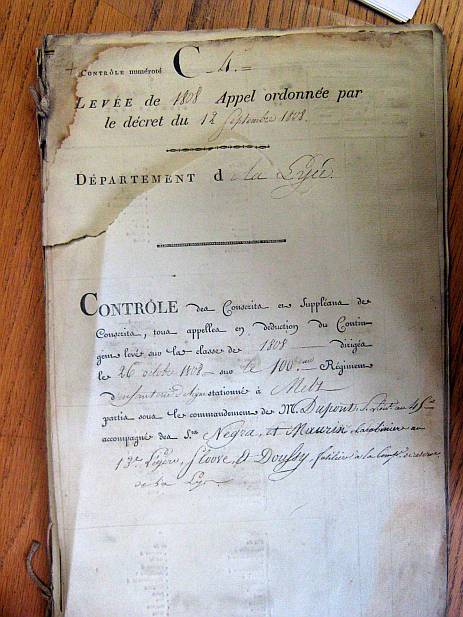 CONTRÔLE numéroté C 4.
LEVÉE de 1808 Appel ordonnée par
le décret du 12 Septembre 1808.
DÉPARTEMENT d e la Lys
CONTRÔLE des Conscrits et Suppléans de
Conscrits, tous appelles en déduction du Contin-
gent levé sur la classe de 1808 dirigés
le 26 octobre 1808 sur le 100.eme Régiment
D'infanterie de ligne stationné à Metz
partis sous le commandement de M. Dupont, S. Lieut. au
accompagné des S.rs Negra, et Maurin, Carabiniers au
13.e Légère, Stoove, & Doussy, fusiliers à la Comp.e de réserve
de la Lys